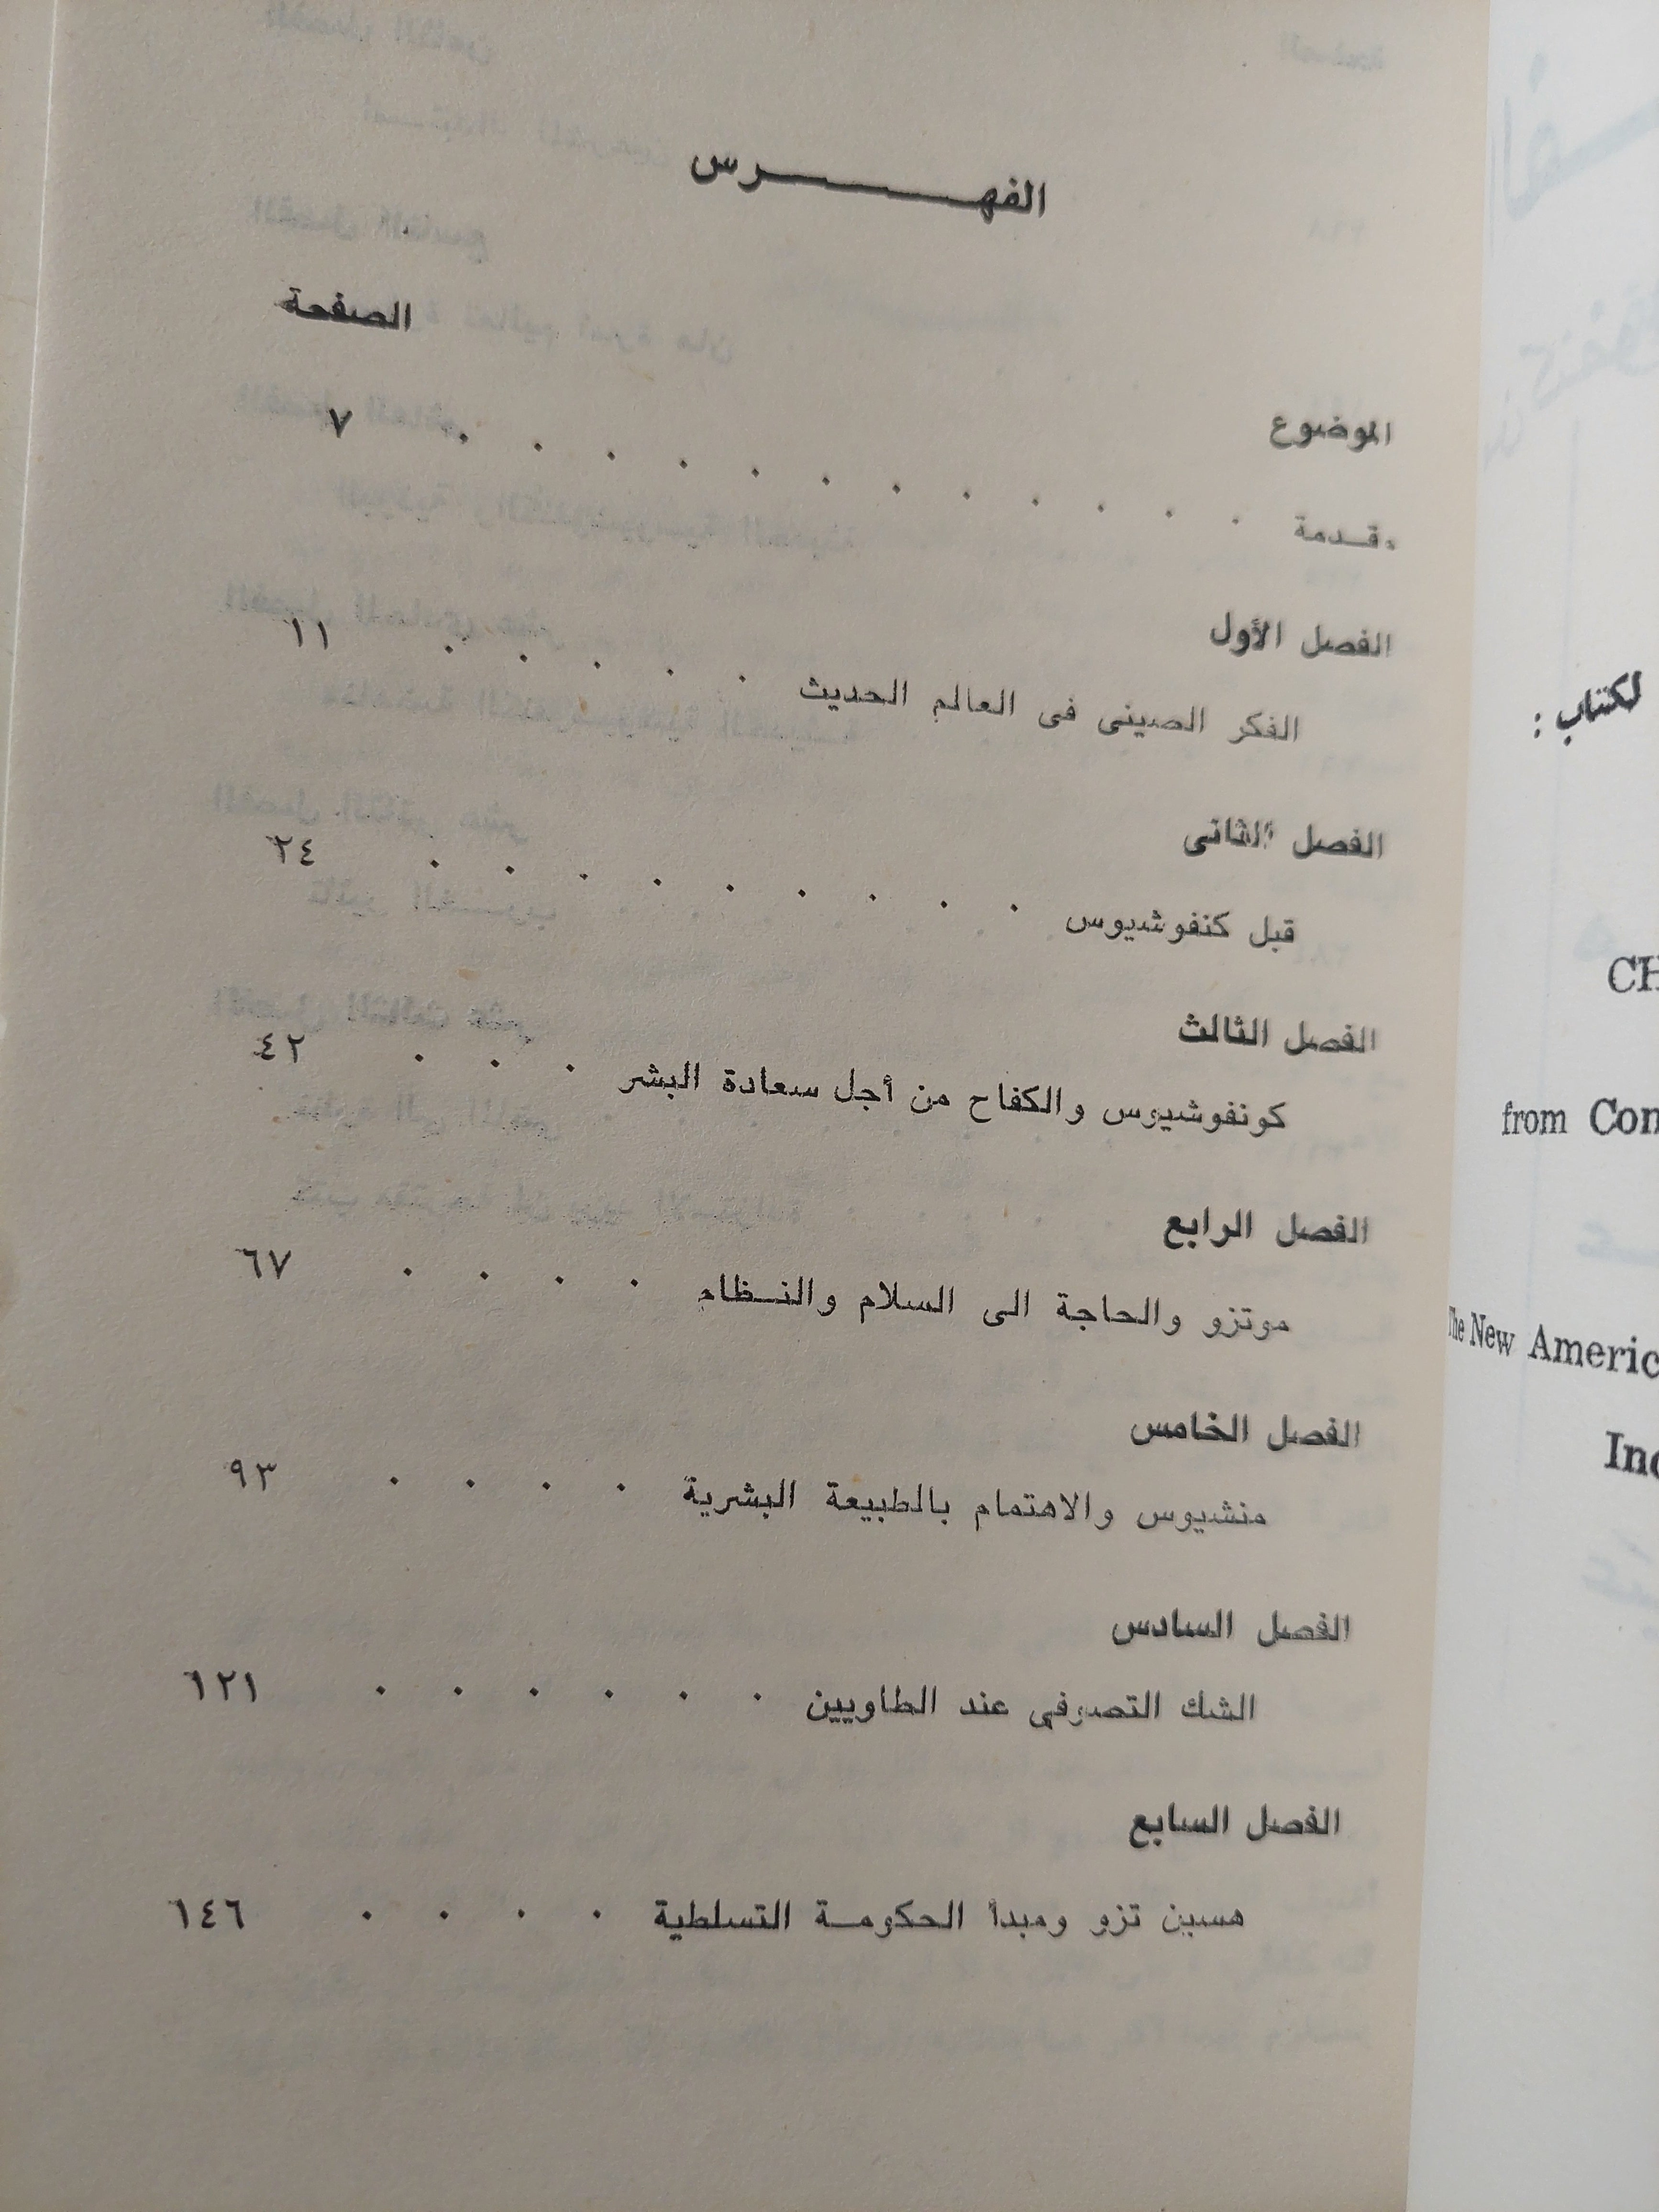 الفهـــــــرس
الصفحة
الموضوع
مقـدمة . . . . . . . . . . . . ٧
الفصل الأول
الفكر الصينى فى العالم الحديث . . . . . ١١
الفصل الثانى
قبل كنفوشيوس . . . . . . . . . ٢٤
الفصل الثالث
كونفوشيوس والكفاح من أجل سعادة البشر . . . ٤٢
الفصل الرابع
موتزو والحاجة الى السلام والنـظام . . . . ٦٧
الفصل الخامس
منشيوس والاهتمام بالطبيعة البشرية . . . . ٩٣
الفصل السادس
الشك التصوفى عند الطاويين . . . . . . ١٢١
الفصل السابع
هسين تزو ومبدأ الحكومـة التسلطية . . . . ١٤٦
لكتاب :
CH
from Con
The New Americ
Inc